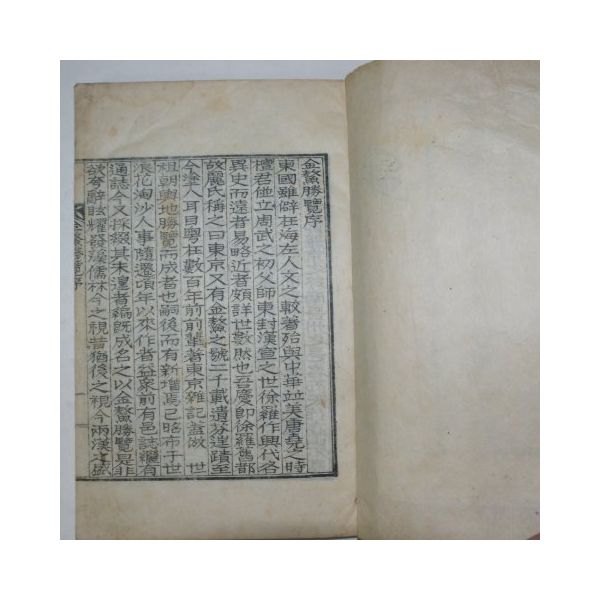 金鰲勝覽序
東國雖僻在海左人文之較著殆與中華並美唐堯之時
檀君佗立周武之初父師東封漢宣之世徐羅作興代各
異史而遠者易略近者頗詳世數然也吾慶卽徐羅舊都
故麗氏稱之曰東京又有金鰲之號二千載遺芬逸蹟至
今塗人耳目粤在數百年前前輩著東京雜記蓋倣 世
祖朝輿地勝覽而成者也嗣後而有新增焉已昭布于世
浪花淘沙人事隨遷頃年以來作者益衆前有邑誌纔有
通誌今又採綴其未遑者編旣成名之以金鰲勝覽是非
欲夸辭眩耀發漢儒林今之視昔猶後之視今兩漢之盛
金鰲勝覽序